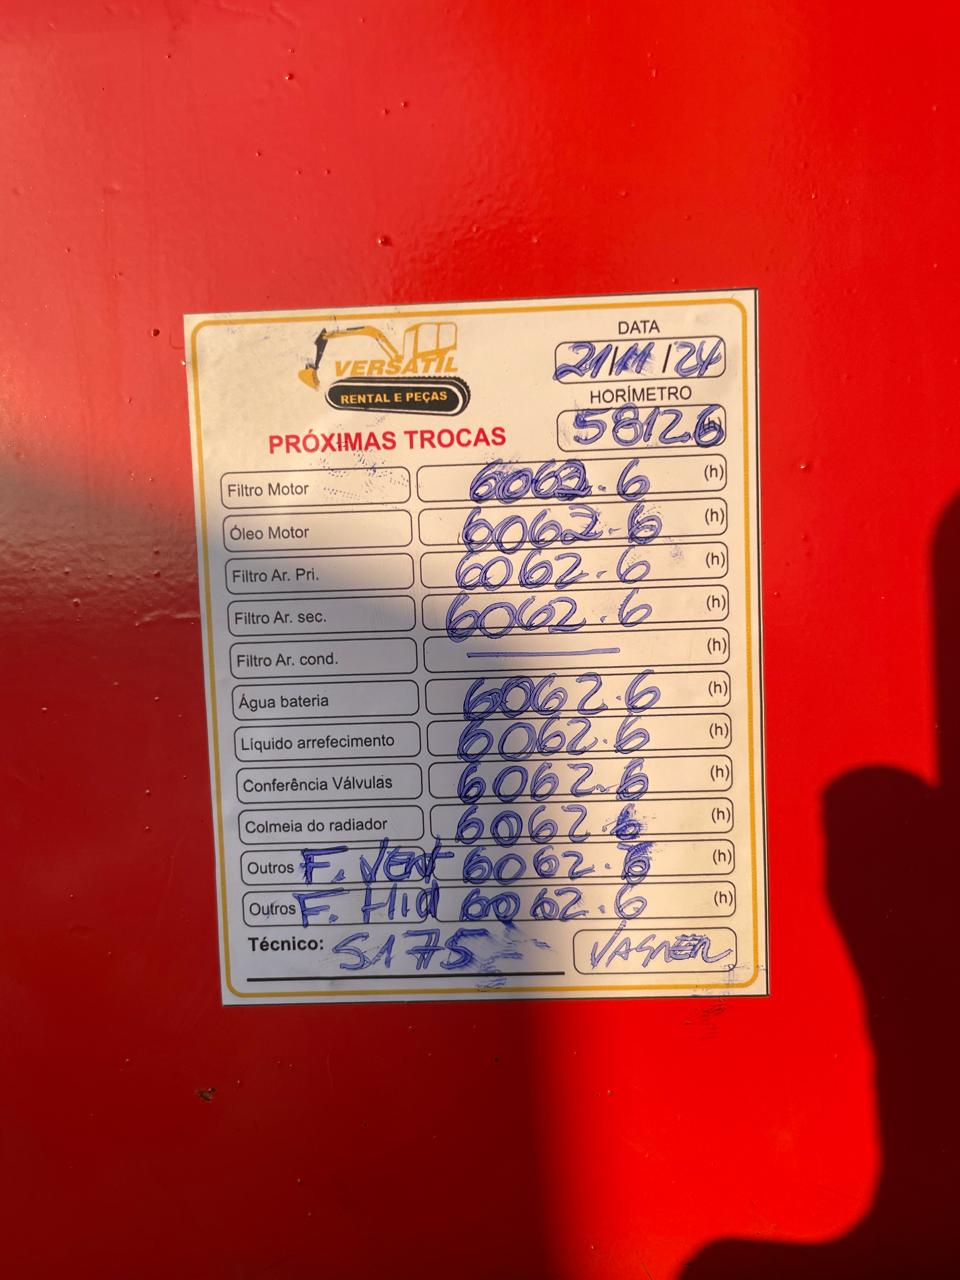 VERSATIL
RENTAL E PEÇAS
DATA
21/11/24
HORÍMETRO
5812.6 (h)
PRÓXIMAS TROCAS
Filtro Motor 6062.6 (h)
Óleo Motor 6062.6 (h)
Filtro Ar. Pri. 6062.6 (h)
Filtro Ar. sec. 6062.6 (h)
Filtro Ar. cond. (h)
Água bateria 6062.6 (h)
Líquido arrefecimento 6062.6 (h)
Conferência Válvulas 6062.6 (h)
Colmeia do radiador 6062.6 (h)
Outros F. VENT 6062.6 (h)
Outros F. Hid 6062.6 (h)
Técnico: S175 VAGNER